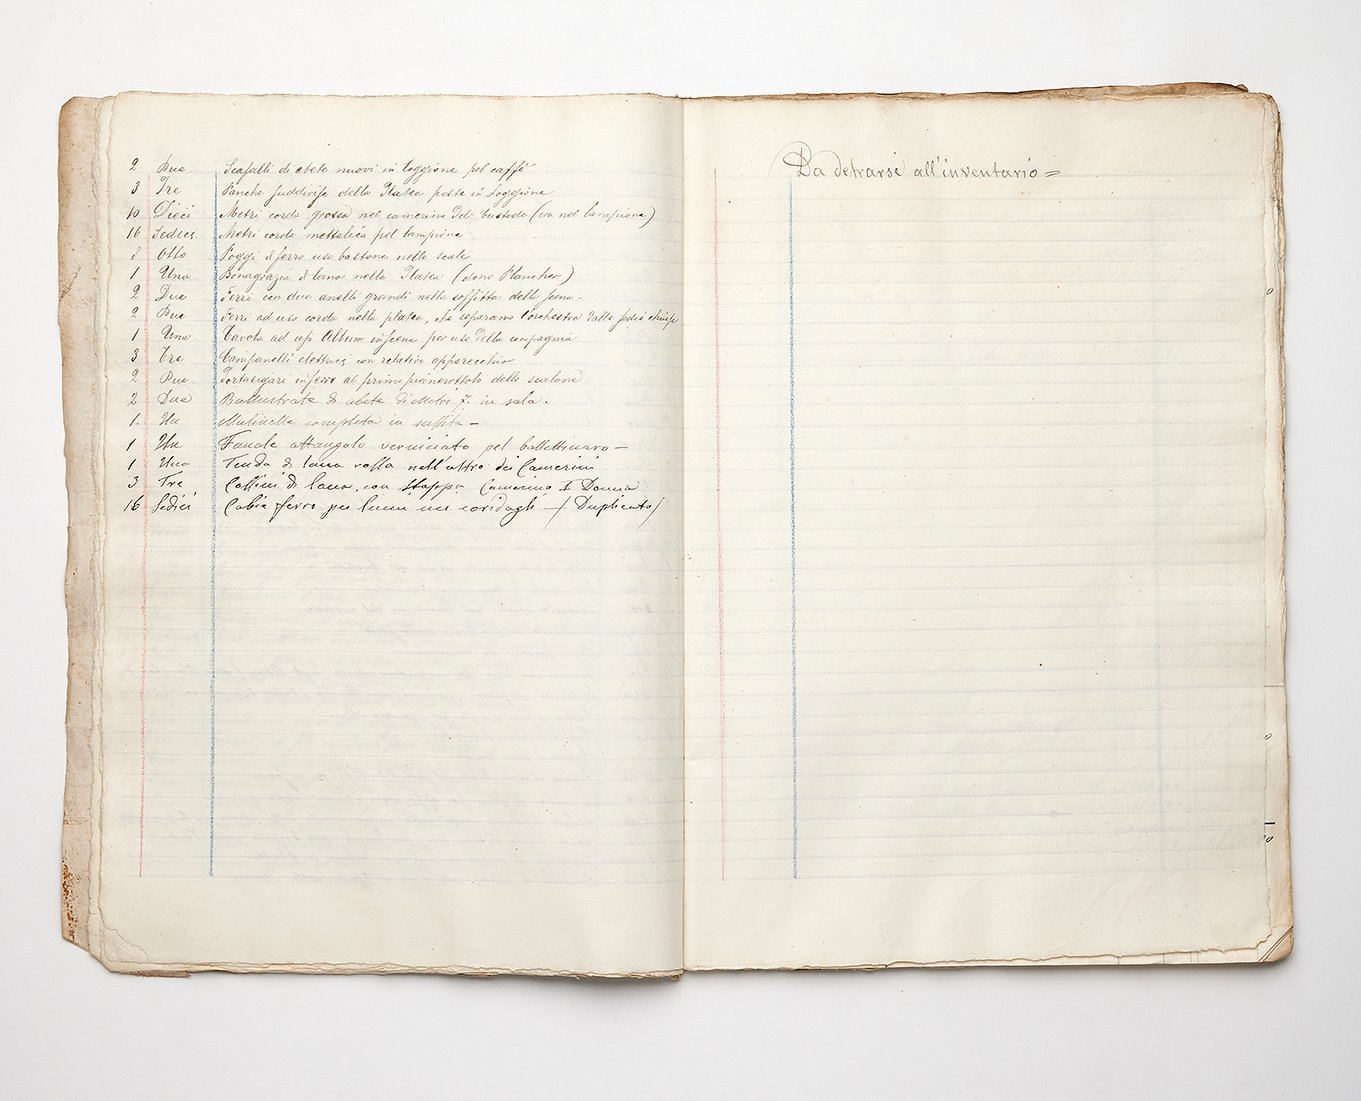 2 Due Scafalli di abete nuovi in loggione pel caffè
3 Tre Panche suddivise della Platea poste in Loggione
10 Dieci Metri corda grossa nel camerino del custode (era nel lampione)
16 Sedici Metri corda mettalica pel lampione
8 Otto Poggi di ferro uso bastone nelle scale
1 Una di lana nella Platea (dono Plancher)
2 Due Ferri con due anelli grandi nella soffitta della scena -
2 Due Ferri ad uso corda nella platea, che separano l'orchestra dalle sedie chiuse
1 Una Tavola ad uso Album in scena per uso della compagnia
3 Tre Campanelli elettrici con relativo apparecchio
2 Due Portasigari in ferro al primo pianerottolo dello scalone
2 Due Ballustrate di abete di Metri 7. in sala.
1. Un Mulinello completo in suffita -
1 Un Fanale ottangolo verniciato pel
1 Una Tenda di lana rossa nell'atrio dei Camerini
3 Tre di lana, con stoppa Camerino I Donna
16 Sedici ferro per lumi nei - / Duplicato /
Da detrarsi all'inventario =